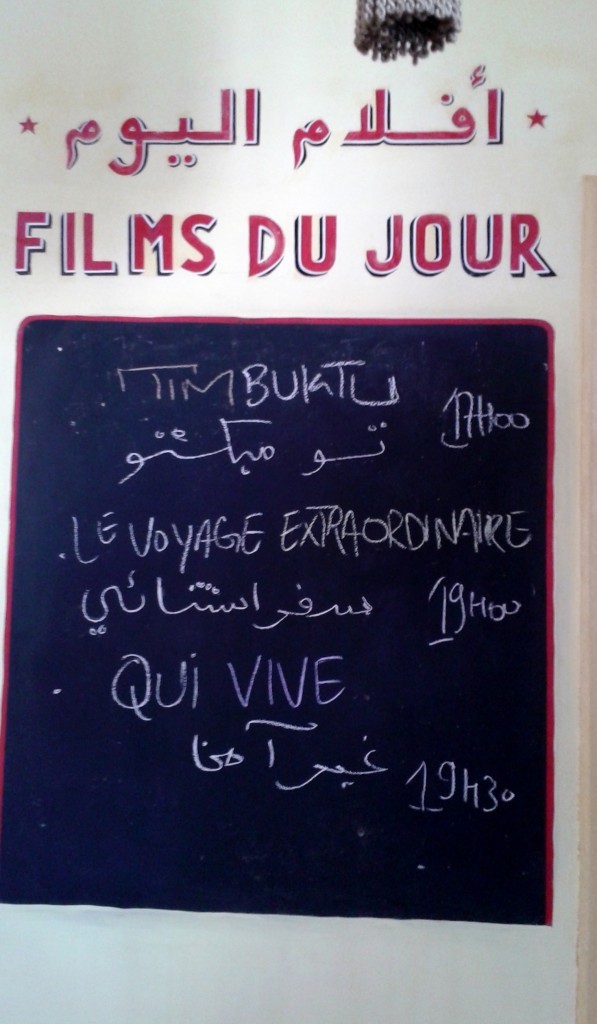 أفلام اليوم
FILMS DU JOUR
TIMBUKTU
تومبكتو
17H00
LE VOYAGE EXTRAORDINAIRE
سفر استثنائي
19H00
QUI VIVE
غير آمنا
19H30